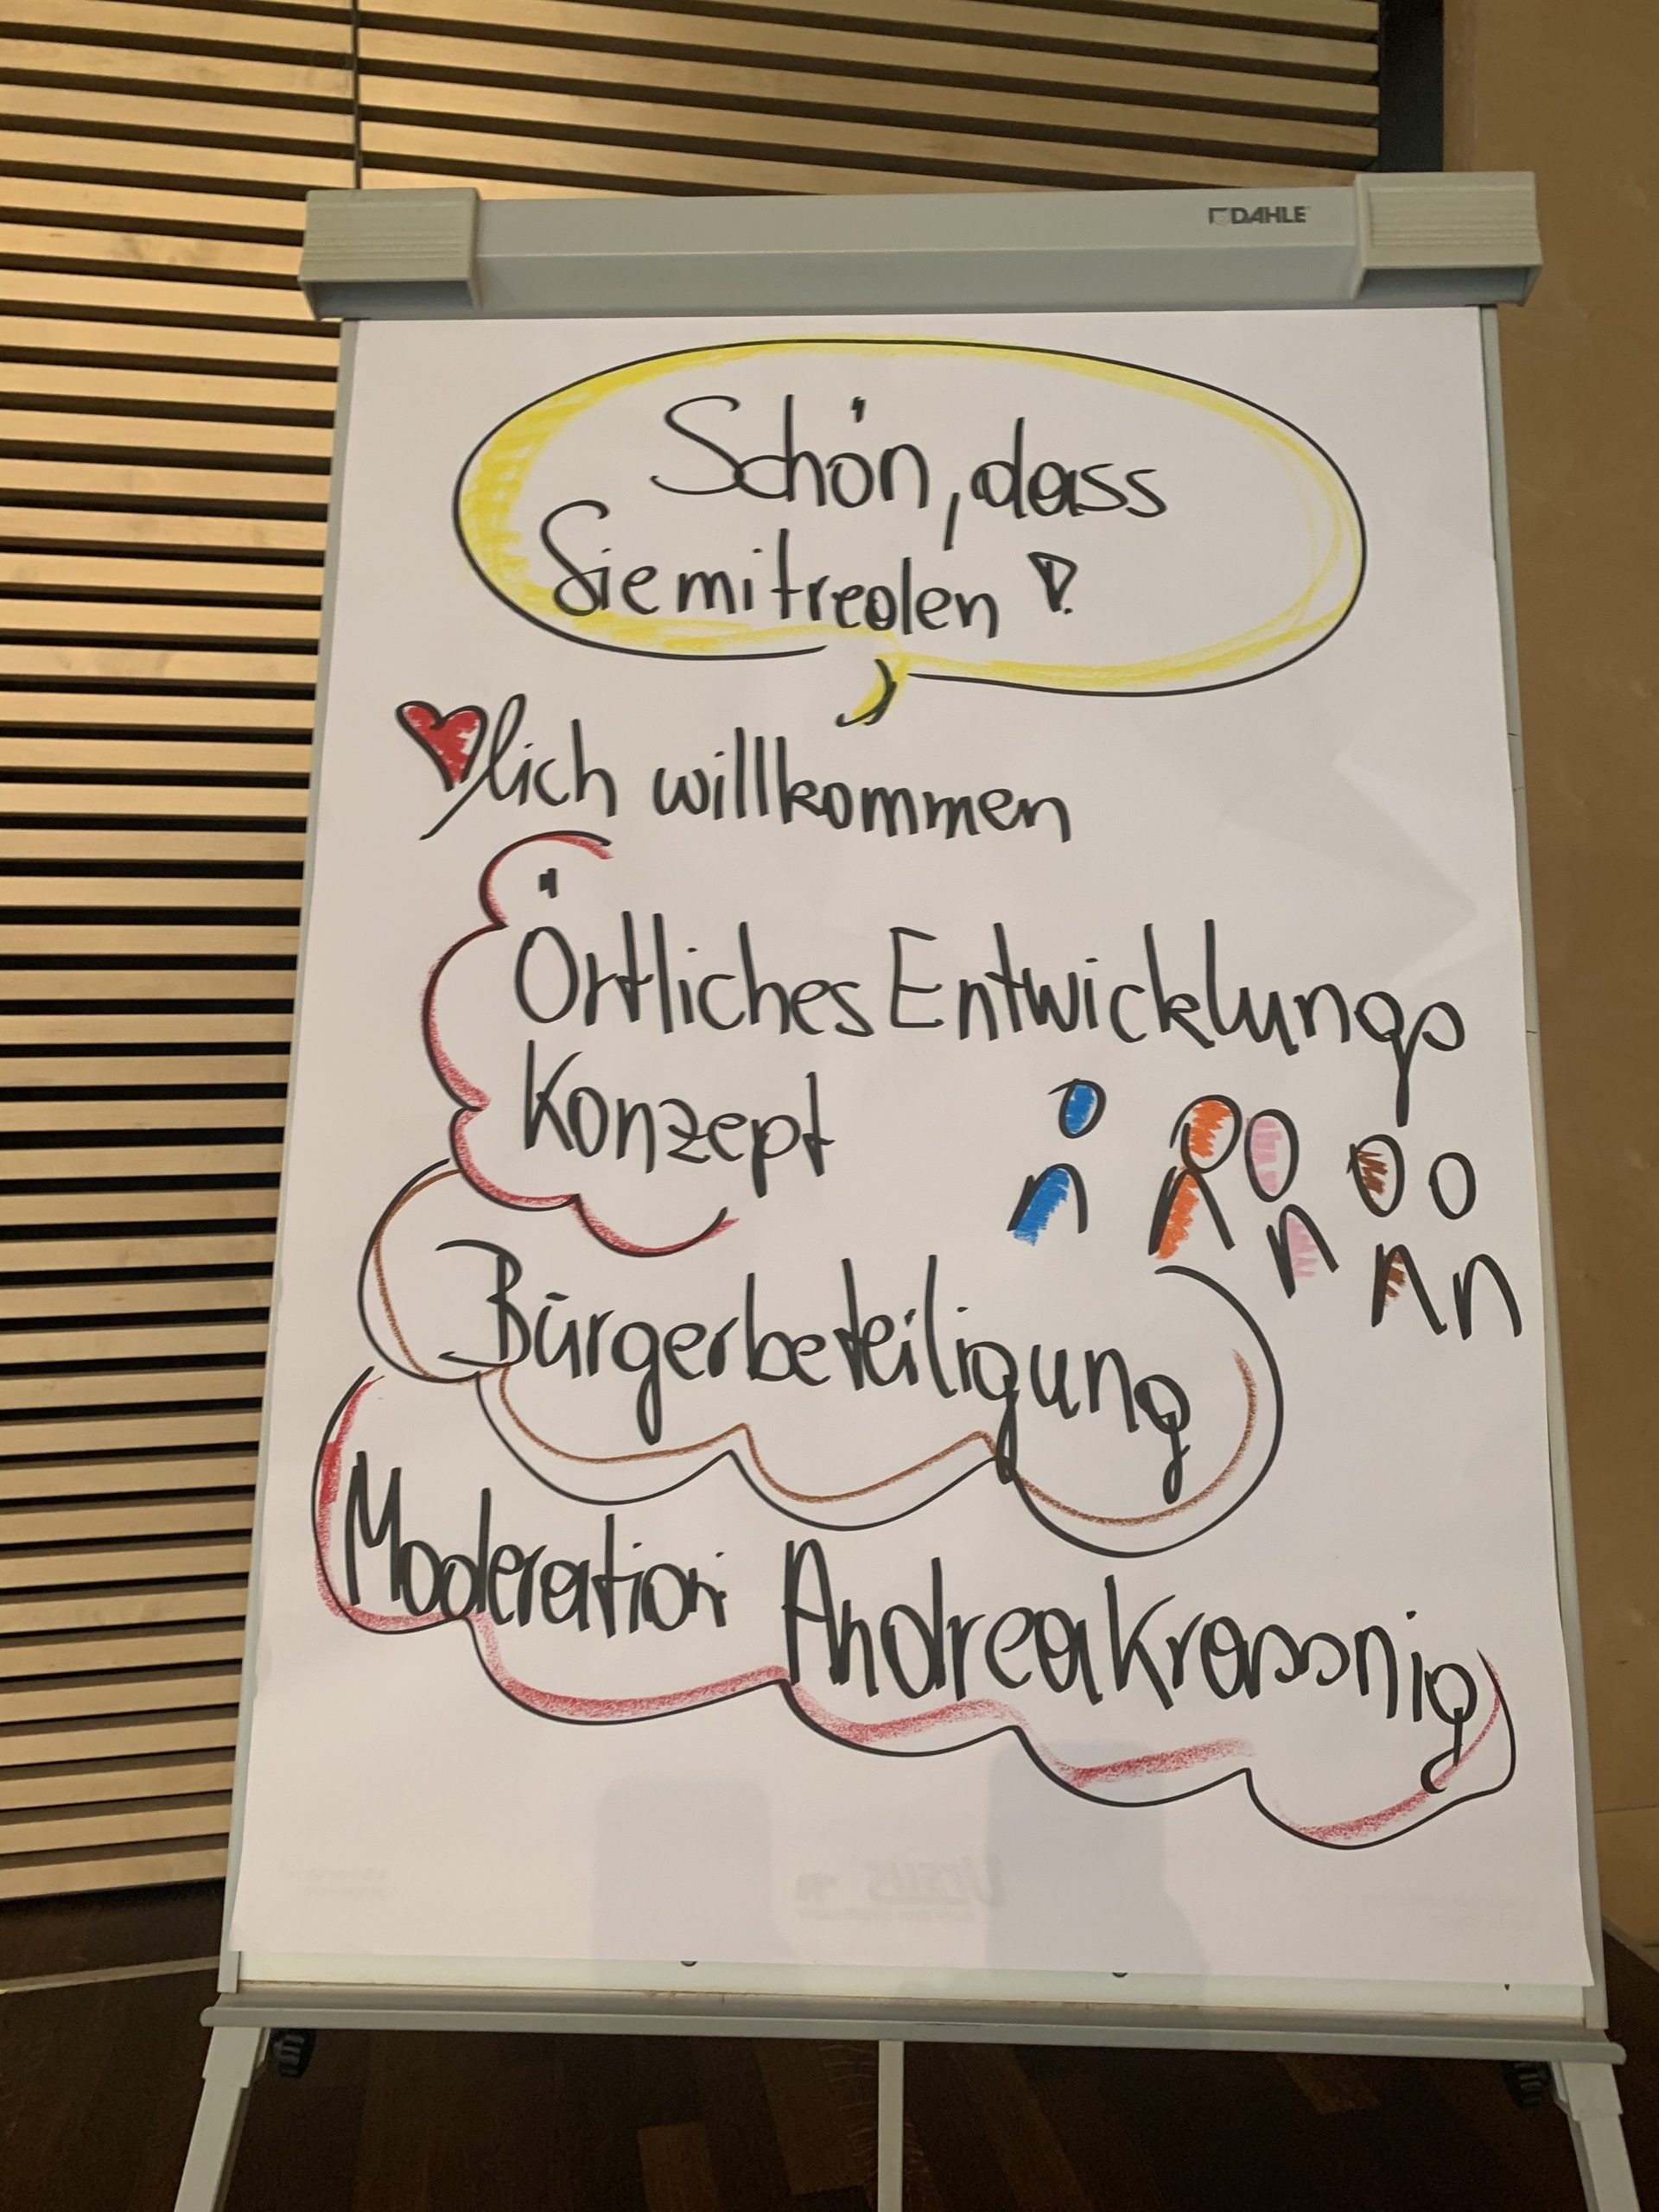 DAHLE
Schön, dass
Sie mitreden!
lich willkommen
Örtliches Entwicklungs
Konzept
Bürgerbeteiligung
Moderation: Andrea Krassnig
Ursus